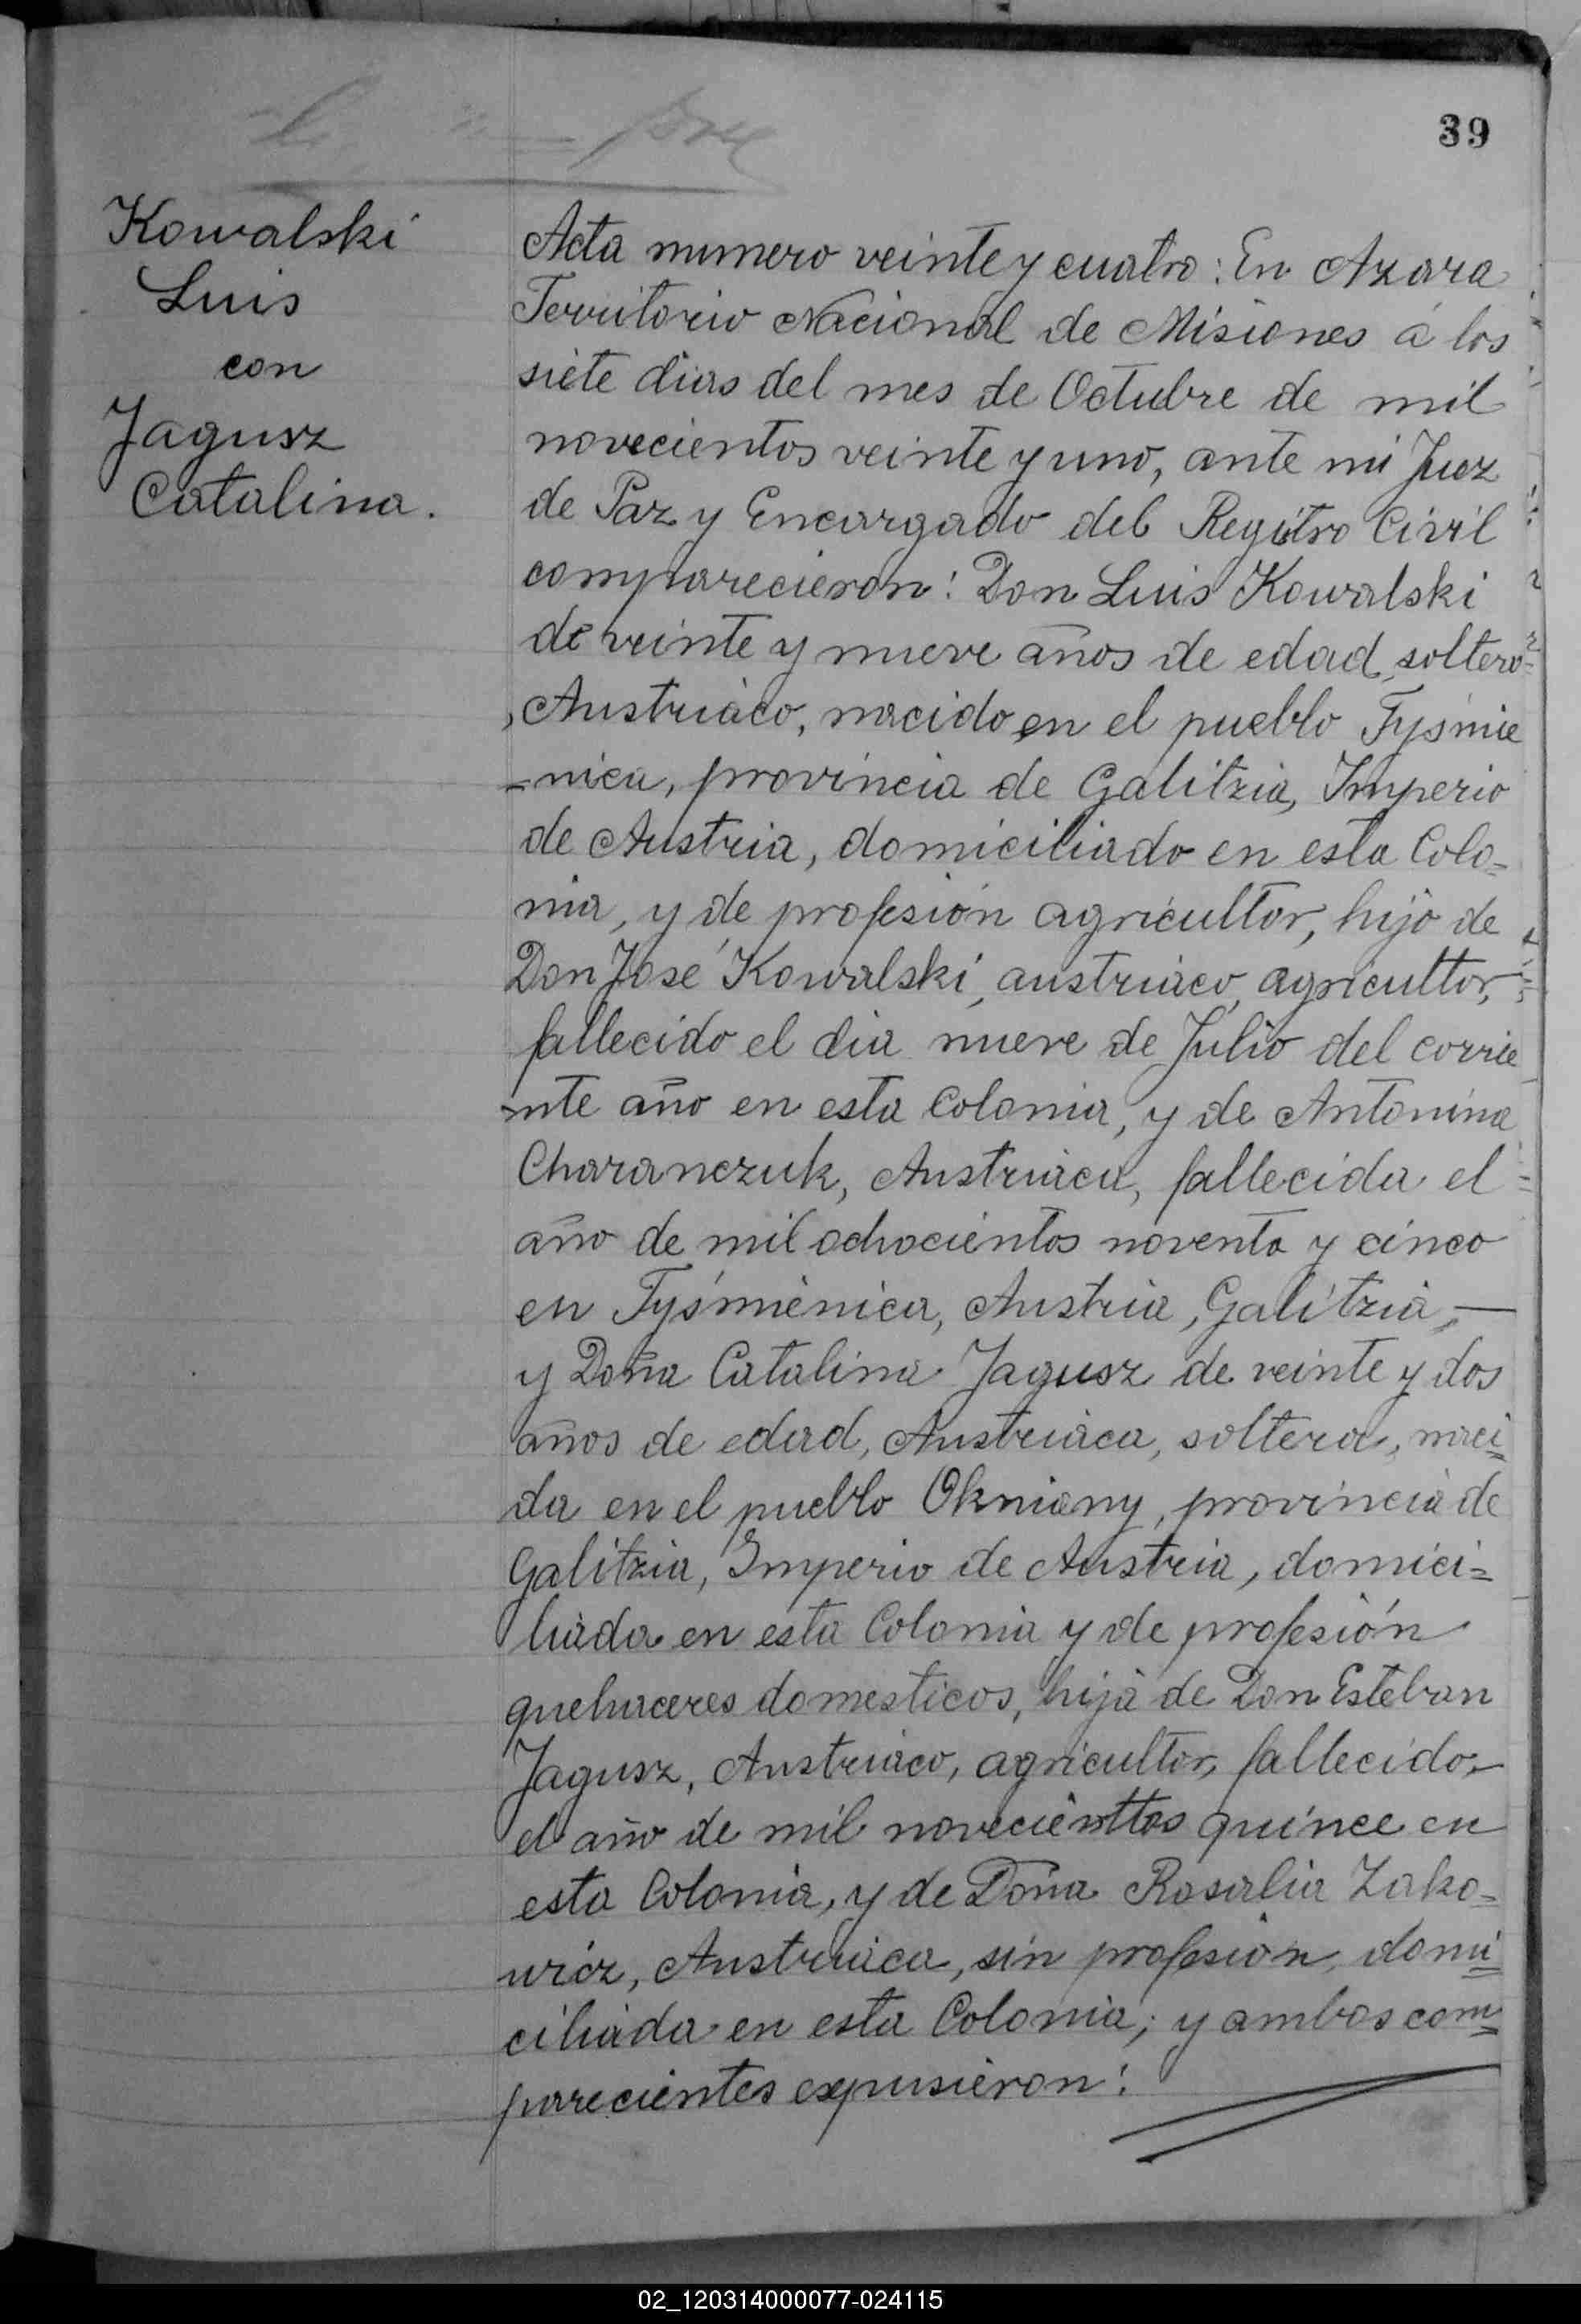 39
Kowalski
Luis
con
Jagusz
Catalina.
Acta numero veinte y cuatro: En Azara
Territorio Nacional de Misiones á los
siete dias del mes de Octubre de mil
novecientos veinte y uno, ante mi Juez
de Paz y Encargado del Regitro Civil
comparecieron: Don Luis Kowalski
de veinte y nueve años de edad, soltero
, Austriaco, nacido en el pueblo Tyśmie
-nica, provincia de Galitzia, Imperio
de Austria, domiciliado en esta Colo=
nia, y de profesión agricultor, hijo de
Don José Kowalski, austriaco, agricultor,
fallecido el dia nueve de Julio del corrie
-nte año en esta Colonia, y de Antonina
Charanczuk, Austriaca, fallecida el
año de mil ochocientos noventa y cinco
en Tyśmienica, Austria, Galitzia, —
y Doña Catalina Jagusz de veinte y dos
años de edad, Austriaca, soltera, naci=
da en el pueblo Okniany, provincia de
Galitzia, Imperio de Austria, domici=
liada en esta Colonia y de profesión
quehaceres domesticos, hija de Don Esteban
Jagusz, Austriaco, agricultor, fallecido,
el año de mil novecienttos quince en
esta Colonia, y de Doña Rosalia Zako=
wicz, Austriaca, sin profesion, domi=
ciliada en esta Colonia; y ambos com=
parecientes expusieron:
02_120314000077-024115